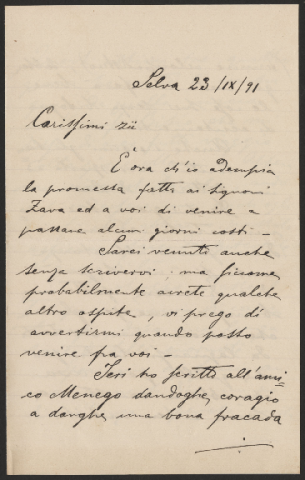 Selva 23/IX/91
Carissimi zii
È ora ch'io adempia
la promessa fatta ai Signori
Zava ed a voi di venire a
passare alcuni giorni costì –
Sarei venuto anche
senza scrivervi: ma siccome
probabilmente avrete qualche
altro ospite, vi prego di
avvertirmi quando posso
venire fra voi –
Ieri ho scritto all'ami-
co Menego dandoghe coragio
a darghe una bona fracada